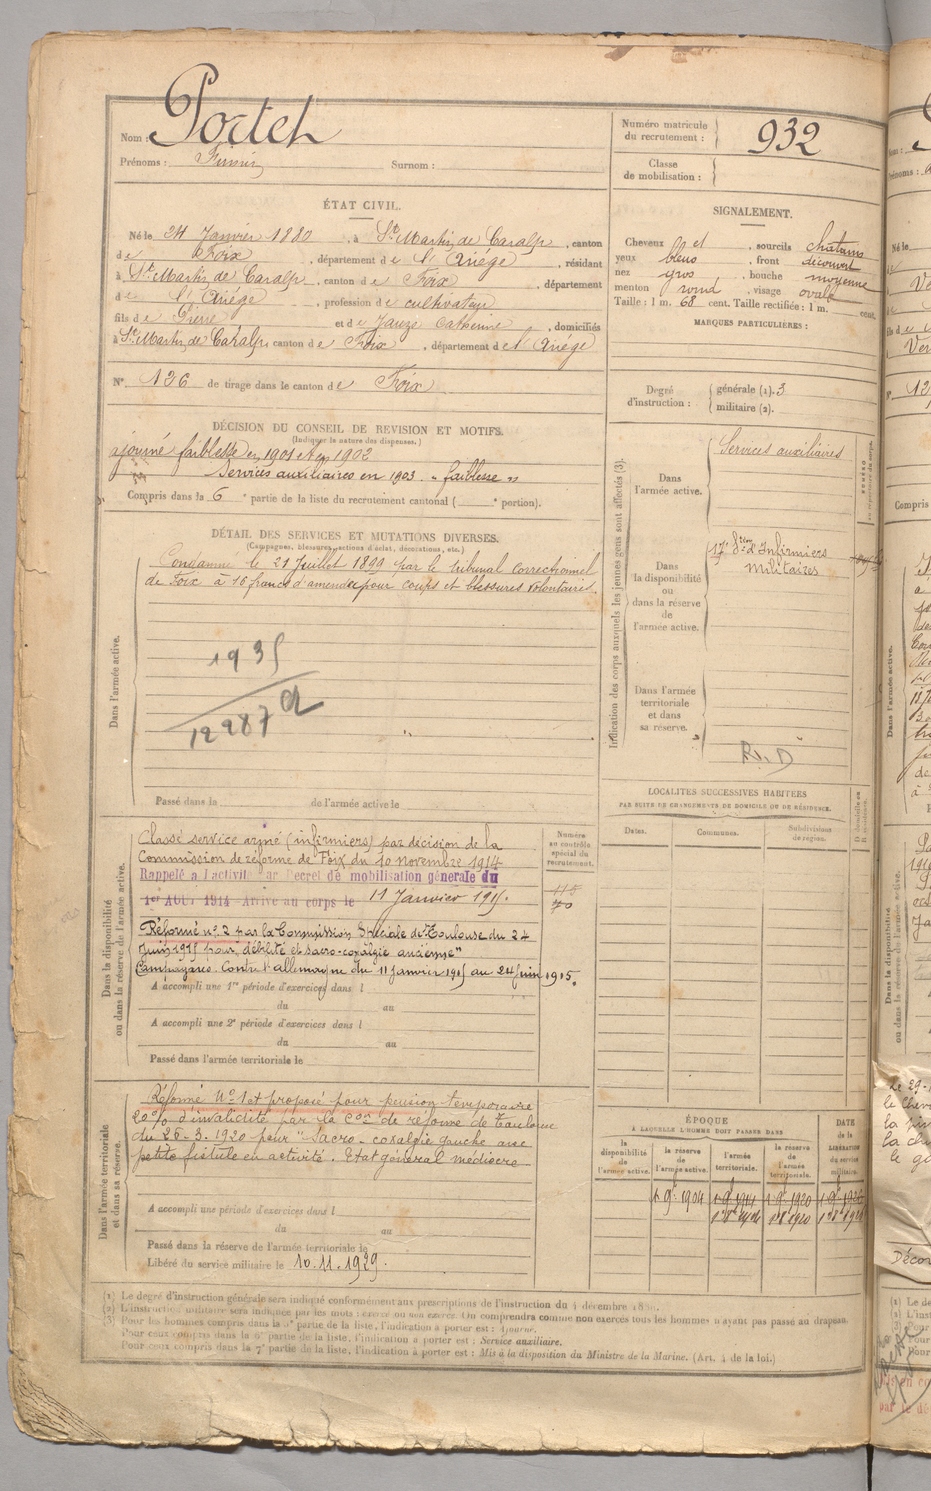 Nom : Portet
Prénoms : Firmin
Surnom :
Numéro matricule du recrutement : 932
Classe de mobilisation :
ÉTAT CIVIL.
Né le 24 Janvier 1880, à St Martin de Caralp, canton
de Foix, département de l'Ariège, résidant
à St Martin de Caralp, canton de Foix, département
de l'Ariège, profession de cultivateur
fils de Pierre et de Jauze Catherine, domiciliés
à St Martin de Caralp, canton de Foix, département de l'Ariège
N° 126 de tirage dans le canton de Foix
SIGNALEMENT.
Cheveux et, sourcils chatains
yeux bleus, front découvert
nez gros, bouche moyenne
menton rond, visage ovale
Taille : 1 m. 68 cent. Taille rectifiée : 1 m. cent.
MARQUES PARTICULIÈRES :
Degré d'instruction : générale (1). 3
militaire (2).
DÉCISION DU CONSEIL DE REVISION ET MOTIFS.
(Indiquer la nature des dispenses.)
ajourné faiblesse en 1901 et en 1902
Services auxiliaires en 1903. "faiblesse"
Compris dans la 6e partie de la liste du recrutement cantonal ( e portion).
DÉTAIL DES SERVICES ET MUTATIONS DIVERSES.
(Campagnes, blessures, actions d'éclat, décorations, etc.)
Dans l'armée active.
Condamné le 21 Juillet 1899 par le tribunal correctionnel
de Foix à 16 francs d'amende pour coups et blessures volontaires.
1935
12287
Passé dans la de l'armée active le
Indication des corps auxquels les jeunes gens sont affectés (3).
Dans l'armée active.
Services auxiliaires
Dans la disponibilité ou dans la réserve de l'armée active.
17e Son d'Infirmiers
Militaires
Dans l'armée territoriale et dans sa réserve.
R.D
LOCALITÉS SUCCESSIVES HABITÉES
PAR SUITE DE CHANGEMENTS DE DOMICILE OU DE RÉSIDENCE.
Dates.
Communes.
Subdivisions de région.
Dans la disponibilité ou dans la réserve de l'armée active.
Numéro au contrôle spécial du recrutement.
Classé service armé (infirmiers) par décision de la
Commission de réforme de Foix du 10 novembre 1914
Rappelé à l'activité par Décret de mobilisation générale du
1er AOUT 1914 - Arrivé au corps le 11 Janvier 1915.
Réformé n° 2 par la Commission Spéciale de Toulouse du 24
Juin 1915 pour "débilité et sacro-coxalgie ancienne"
Campagnes. Contre l'allemagne du 11 Janvier 1915 au 24 Juin 1915.
A accompli une 1re période d'exercices dans l
du au
A accompli une 2e période d'exercices dans l
du au
Passé dans l'armée territoriale le
Dans l'armée territoriale et dans sa réserve.
Réformé N° 1 et proposé pour pension temporaire
20% d'invalidité par la Con de réforme de Toulouse
du 26-3-1920 pour "Sacro-coxalgie gauche avec
petite fistule en activité. Etat général médiocre
A accompli une période d'exercices dans l
du au
Passé dans la réserve de l'armée territoriale le
Libéré du service militaire le 10.11.1929.
ÉPOQUE
À LAQUELLE L'HOMME DOIT PASSER DANS
la disponibilité de l'armée active.
la réserve de l'armée active.
l'armée territoriale.
la réserve de l'armée territoriale.
DATE de la LIBÉRATION du service militaire.
(1) Le degré d'instruction générale sera indiqué conformément aux prescriptions de l'instruction du 4 décembre
(2) L'instruction militaire sera indiquée par les mots : exercé ou non exercé. On comprendra comme non exercés tous les hommes n'ayant pas passé au drapeau.
(3) Pour les hommes compris dans la 5e partie de la liste, l'indication à porter est : Ajourné.
Pour ceux compris dans la 6e partie de la liste, l'indication à porter est : Service auxiliaire.
Pour ceux compris dans la 7e partie de la liste, l'indication à porter est : Mis à la disposition du Ministre de la Marine. (Art. 4 de la loi.)